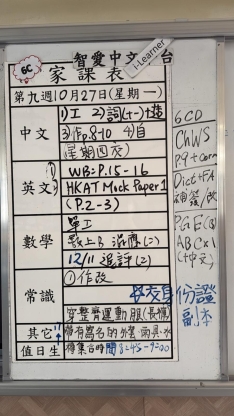 智愛中文平台
i-Learner
6C
家課表
第九週10月27日(星期一)
中文
1)工 2)詞(十一)+造
3)作p.8-10 4)自
(星期四交)
英文
WB: P.15-16
HKAT Mock Paper 1
(P.2-3)
數學
單工
數上B
12/11
常識
①作改
穿整齊運動服(長褲)
其它
帶有寫名的外褸、雨具、水
值日生
集合時間8:45-9:00
6CD
ChWS
P9 + corr
Dict+FA
PG E(3)
ABC×1
(中文)
身份證
副本